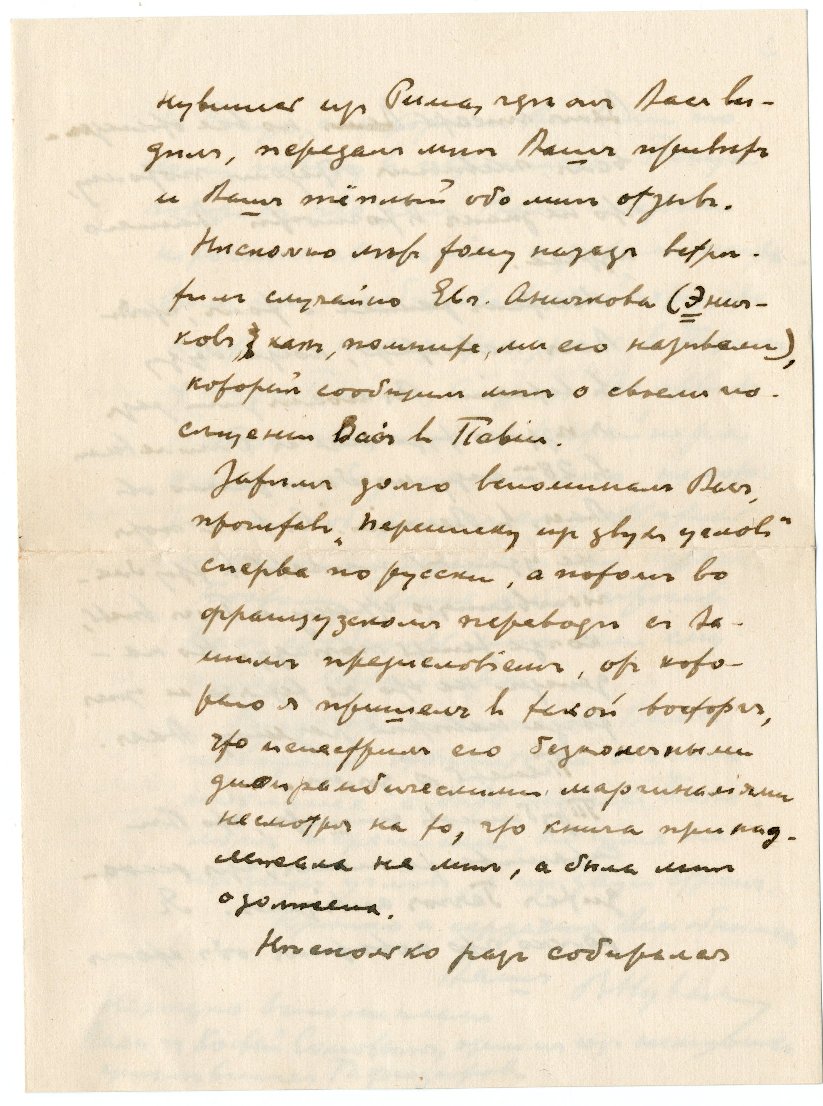 нувшись изъ Рима, гдѣ онъ Васъ ви-
дѣлъ, передалъ мнѣ Вашъ привѣтъ
и Вашъ тёплый обо мнѣ отзывъ.
Нѣсколько лѣтъ тому назадъ встрѣ-
тилъ случайно Евг. Аничкова (Энич-
ковъ, какъ, помните, мы его называли),
который сообщилъ мнѣ о своемъ по-
сѣщении Васъ в Павіи.
Затѣмъ долго вспоминалъ Васъ,
прочитавъ „Переписку изъ двухъ угловъ"
сперва по русски, а потомъ во
французскомъ переводѣ съ Ва-
шимъ предисловіемъ, отъ кото-
раго я пришелъ в такой восторгъ,
что испестрилъ его безконечными
дифирамбическими маргиналіями
несмотря на то, что книга принад-
лежала не мнѣ, а была мнѣ
одолжена.
Нѣсколько разъ собирался